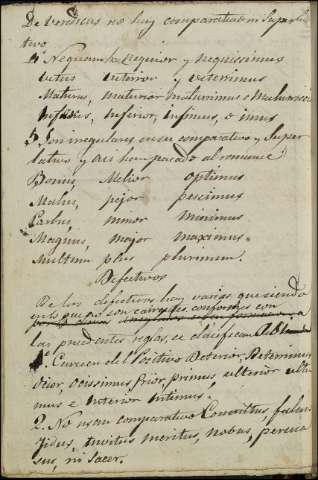 De veridicus no hay comparativo ni Superla
tivo.
4ª Nequam, nequior y nequissimus
vetus veterior y veterrimus
Maturus, maturior maturimus o Maturrisi
Inferus, inferior, infimus, o imus
5 Son irregulares en su comparativo y Super
lativo y asi han pasado al romance
Bonus, Melior optimus
Malus, pejor pessimus
Parbus, minor minimus
Magnus, major maximus.
Multum plus plurimum.
Defectivos
De los defectivos hay varios que siendo
en lo que son conformes con
las precedentes reglas, se clasifican
1ª Carecen del Positivo Deterior, Deterrimus
Ocior, ocissimus, prior, primus, ulterior ulti
mus e Interior intimus.
2. No usan comparativo Invictus, falsus
fidus, invitus meritus, nobus, persua
sus, ni sacer.